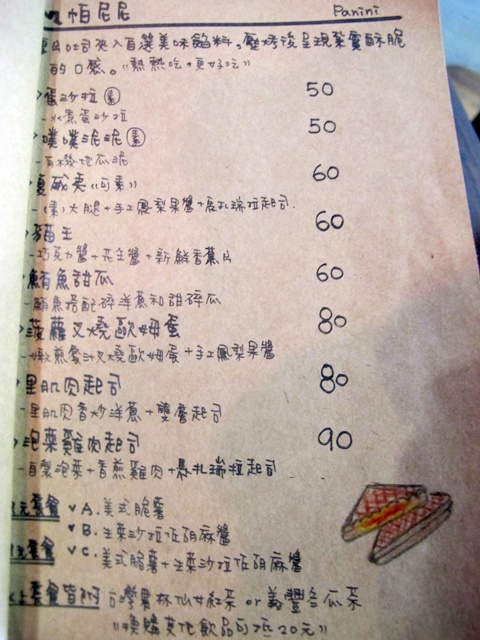 帕尼尼 Panini
吐司夾入自選美味餡料,壓烤後呈現紮實酥脆
的口感。"熱熱吃,更好吃"
蛋沙拉 50
水煮蛋沙拉
噗噗泥泥 50
有機地瓜泥
夏威夷"可素" 60
(素)火腿+手工鳳梨果醬+馬扎瑞拉起司.
貓王 60
巧克力醬+花生醬+新鮮香蕉片
鮪魚甜瓜 60
鮪魚搭配碎洋蔥和甜碎瓜
菠蘿叉燒歐姆蛋 80
嫩煎蜜汁叉燒歐姆蛋+手工鳳梨果醬
里肌肉起司 80
里肌肉香炒洋蔥+雙層起司
泡菜雞肉起司 90
自製泡菜+香煎雞肉+馬扎瑞拉起司.
元套餐 A. 美式脆薯
B. 生菜沙拉佐胡麻醬
元套餐 C. 美式脆薯+生菜沙拉佐胡麻醬
以上套餐皆附 台灣農林仙女紅茶 or 義豐冬瓜茶
"換購其他飲品可抵20元"